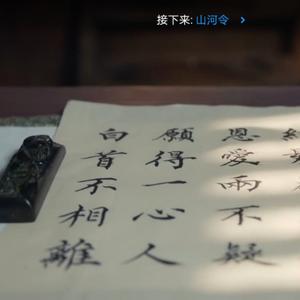 接下来: 山河令
恩愛兩不疑
願得一心人
白首不相離